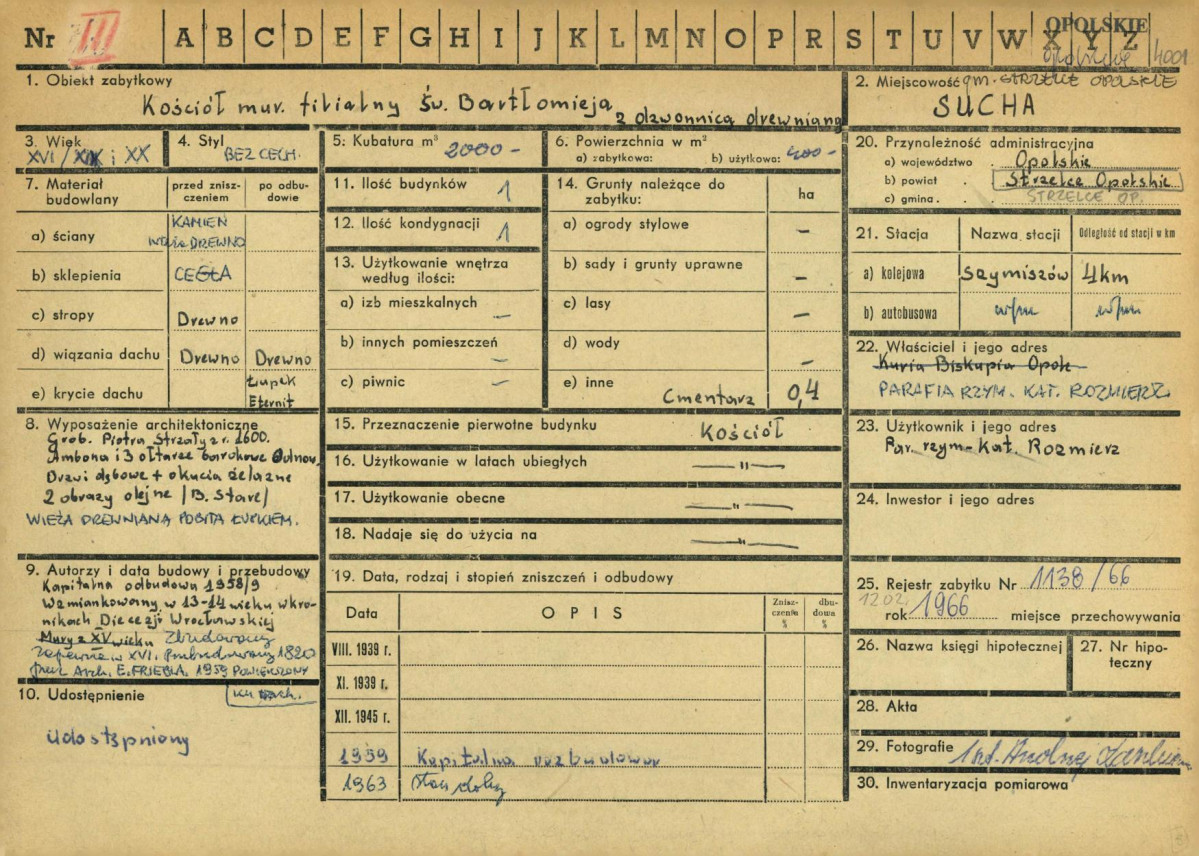 Nr III A B C D E F G H I J K L M N O P R S T U V W X Y Z
OPOLSKIE
4001
1. Obiekt zabytkowy
Kościół mur. filialny Św. Bartłomieja
z dzwonnicą drewnianą
2. Miejscowość gm. STRZELCE OPOLSKIE
SUCHA
3. Wiek
XVI/XIX i XX
4. Styl
BEZ CECH.
5. Kubatura m³
2000-
6. Powierzchnia w m²
a) zabytkowa: b) użytkowa: 400-
7. Materiał budowlany
przed zniszczeniem
po odbudowie
a) ściany
KAMIEŃ
wieża DREWNO
b) sklepienia CEGŁA
c) stropy Drewno
d) wiązania dachu Drewno Drewno
e) krycie dachu
Łupek
Eternit
8. Wyposażenie architektoniczne
Grob. Piotra Strzały z r. 1600.
Ambona i 3 ołtarze barokowe Odnow.
Drzwi dębowe + okucia żelazne
2 obrazy olejne /B. Stare/
WIEŻA DREWNIANA POBITA ŁUPKIEM.
9. Autorzy i data budowy i przebudowy
Kapitalna odbudowa 1958/9
Wzmiankowany w 13-14 wieku w kro-
nikach Diecezji Wrocławskiej
Mury z XV wieku Zbudowany
zapewne w XVI. przebudowany 1820
przez Arch. E. FRIEBLA. 1959 POWIĘKSZONY
ku zach.
10. Udostępnienie
Udostępniony
11. Ilość budynków 1
12. Ilość kondygnacji 1
13. Użytkowanie wnętrza
według ilości:
a) izb mieszkalnych —
b) innych pomieszczeń —
c) piwnic —
14. Grunty należące do
zabytku:
ha
a) ogrody stylowe —
b) sady i grunty uprawne —
c) lasy —
d) wody —
e) inne
Cmentarz 0,4
15. Przeznaczenie pierwotne budynku Kościół
16. Użytkowanie w latach ubiegłych —"—
17. Użytkowanie obecne —"—
18. Nadaje się do użycia na —"—
19. Data, rodzaj i stopień zniszczeń i odbudowy
Data
OPIS
Zniszczenia %
dbudowa %
VIII. 1939 r.
XI. 1939 r.
XII. 1945 r.
1959 Kapitalna rozbudowa
1963 Stan dobry
20. Przynależność administracyjna
a) województwo . Opolskie
b) powiat . Strzelce Opolskie
c) gmina . . STRZELCE OP.
21. Stacja
Nazwa stacji
Odległość od stacji w km
a) kolejowa Szymiszów 4km
b) autobusowa w/m w/m
22. Właściciel i jego adres
Kuria Biskupia Opole
PARAFIA RZYM. KAT. ROZMIERZ
23. Użytkownik i jego adres
Par. rzym-kat. Rozmierz
24. Inwestor i jego adres
25. Rejestr zabytku Nr 1138/66
12.02.
rok 1966 miejsce przechowywania
26. Nazwa księgi hipotecznej
27. Nr hipoteczny
28. Akta
29. Fotografie
30. Inwentaryzacja pomiarowa